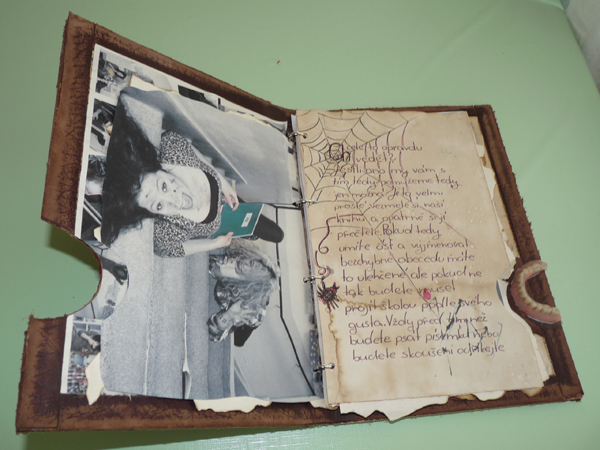 Chcete to opravdu
vědět?
Jestli ano my vám s
tím tedy pomůžeme tedy
jen možná. Je to velmi
prosté vezměte si naší
knihu a opatrně si ji
přečtěte. Pokud tedy
umíte číst a vyjmenovat
bezchybně abecedu máte
to ulehčené ale pokud ne
tak budete muset
projít školou podle svého
gusta. Vždy před tím než
budete psát písemku nebo
budete zkoušeni odříkejte